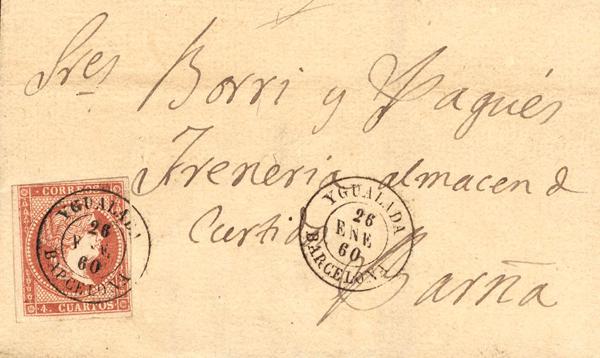 Sres Borri y Pagués
Freneria almacen d
Curtid
Barña
CORREOS
YGUALADA
26
E E
60
BARCELONA
4. CUARTOS
YGUALADA
26
ENE
60
BARCELONA